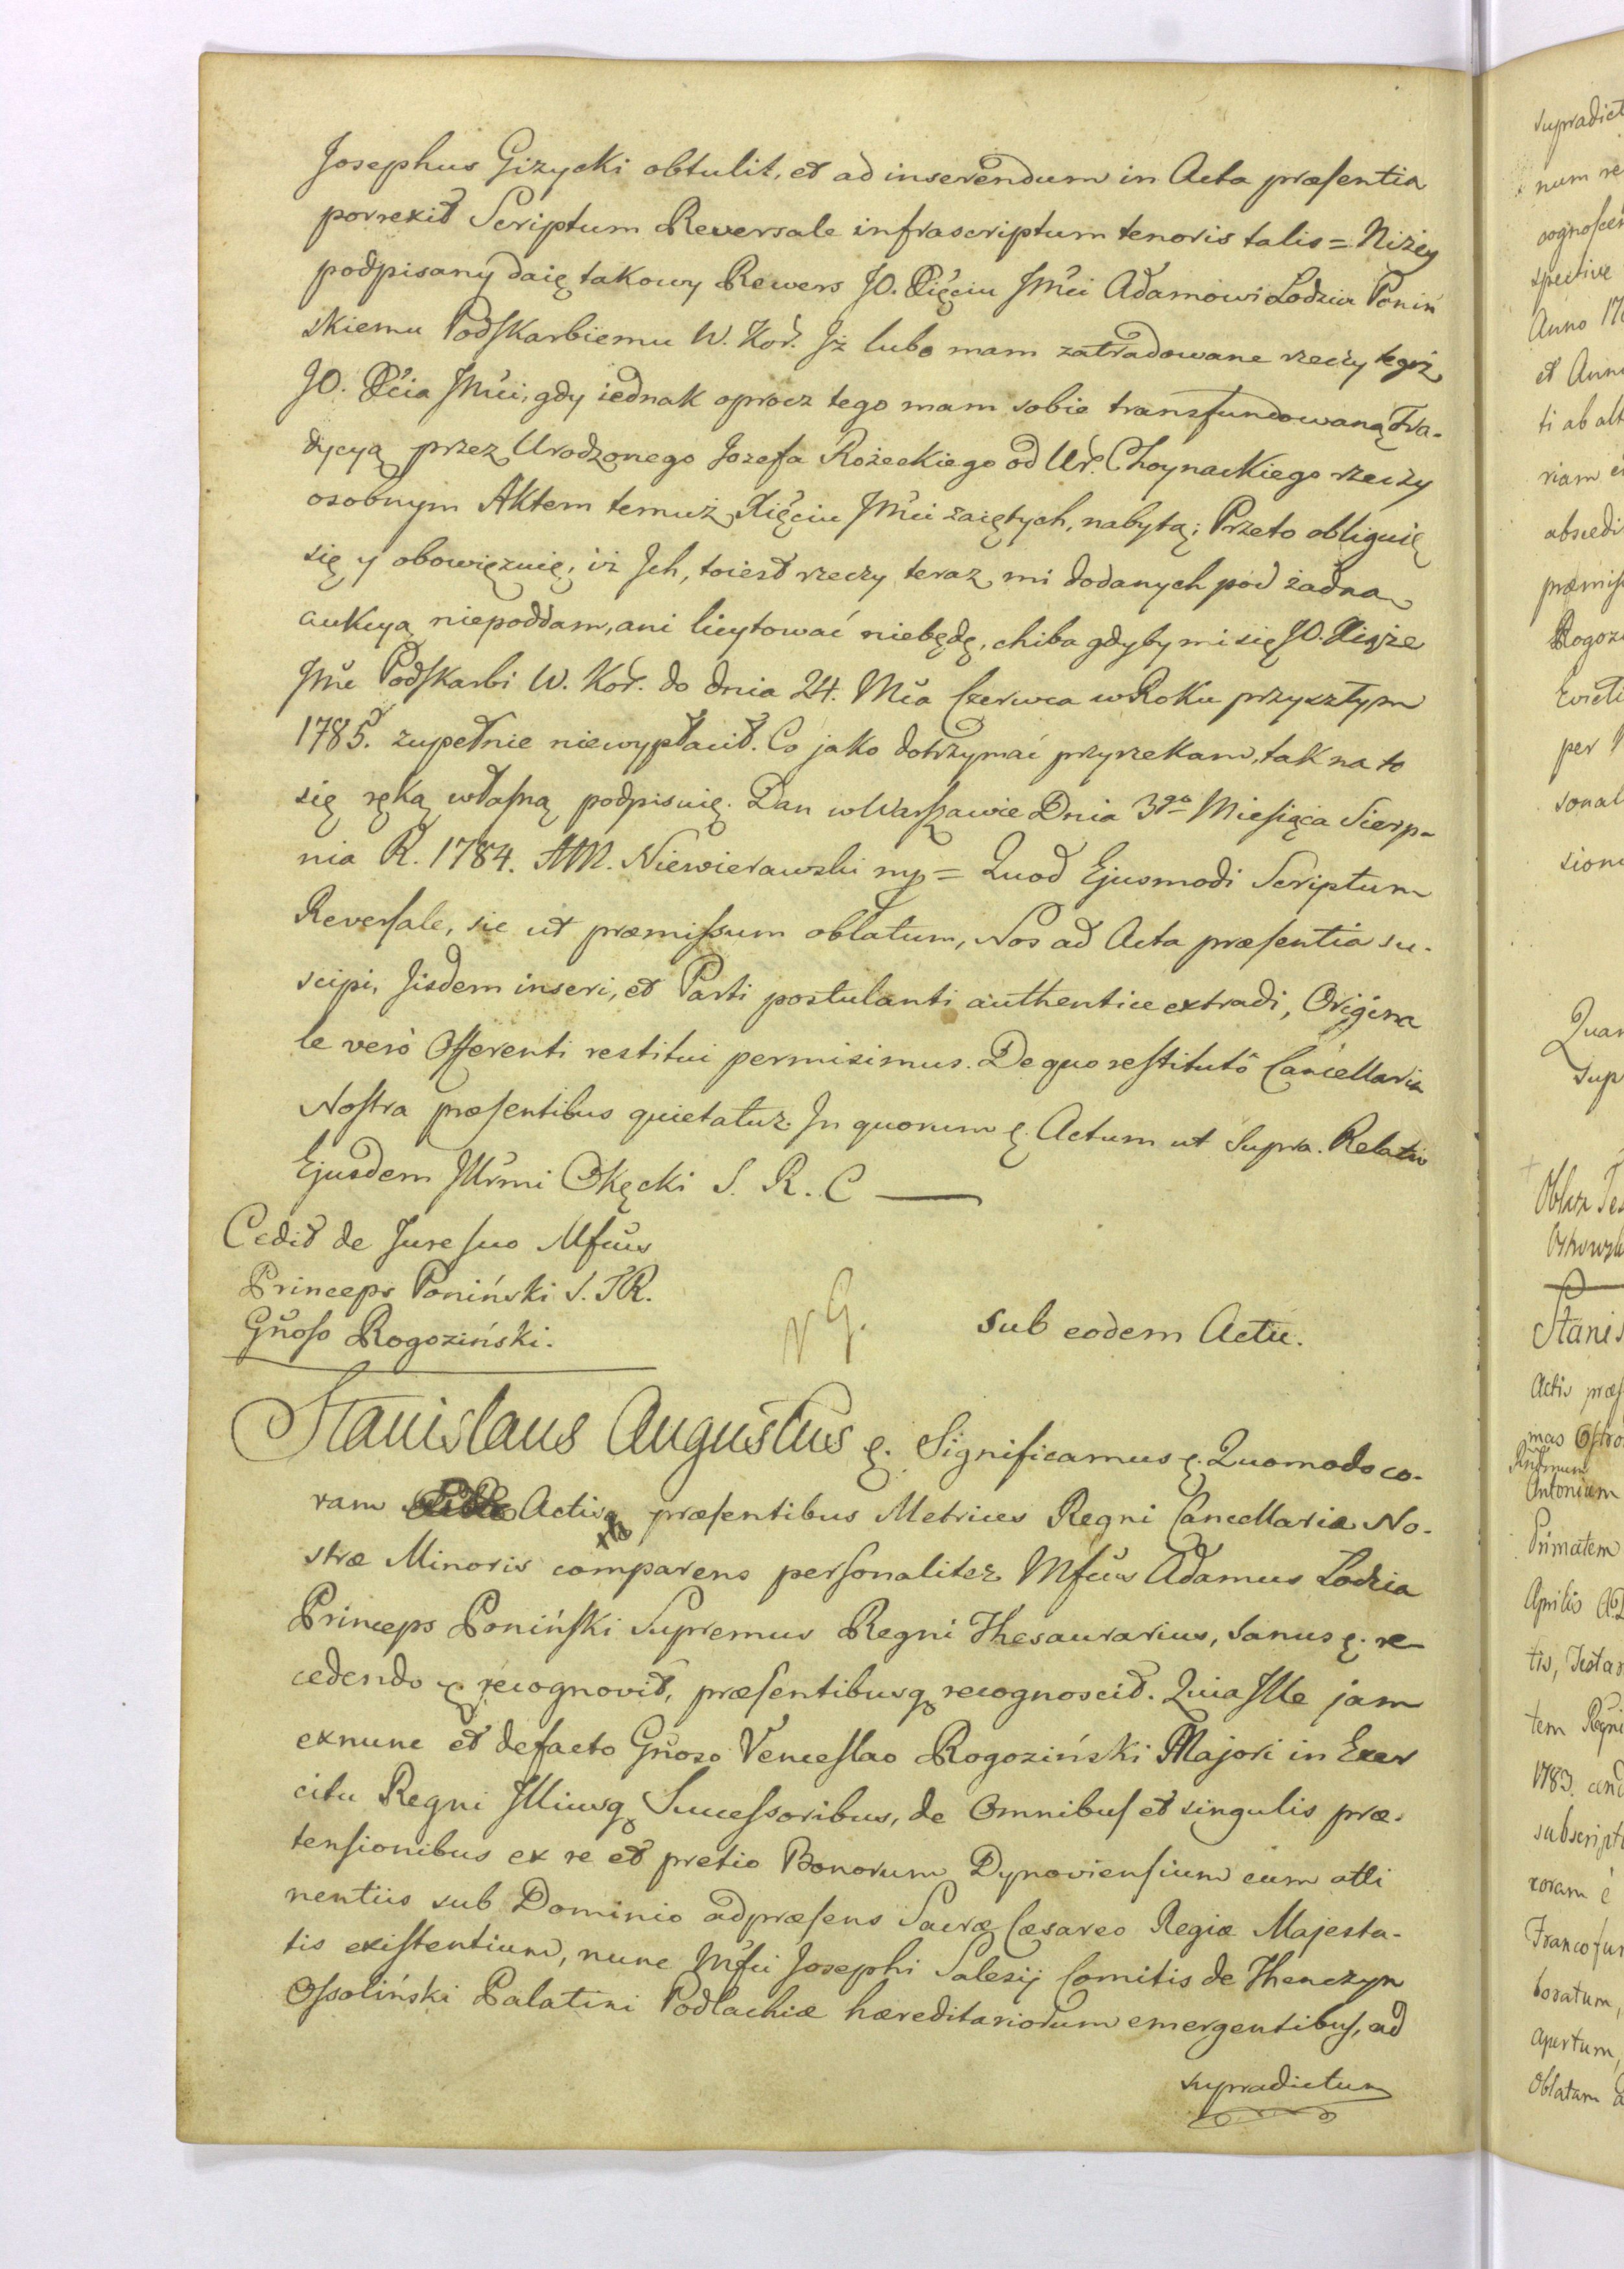 Josephus Giżycki obtulit, et ad inserendum in Acta præsentia
porrexit Scriptum Reversale infrascriptum tenoris talis = Niżey
podpisany daię takowy Rewers JO. Xięciu Jmci Adamowi Lodzia Poniń
skiemu Podskarbiemu W. Kor. Jż lubo mam zatradowane rzeczy tegoż
JO. Xcia Jmci, gdy iednak oprocz tego mam sobie transfundowaną Tra-
dycyą przez Urodzonego Jozefa Rożeckiego od Ur. Choynackiego rzeczy
osobnym Aktem temuż Xięciu Jmci zaiętych, nabytą; Przeto obliguię
się y obowięzuię, iż Jch, toiest rzeczy teraz mi dodanych pod żadna
aukcyą niepoddam, ani licytować niebędę, chiba gdyby mi się JO. Xiąże
Jmc Podskarbi W. Kor. do dnia 24. Mca Czerwca w Roku przyszłym
1785. zupełnie niewypłacił. Co jako dotrzymać przyrzekam, tak na to
się ręką własną podpisuię. Dan w Warszawie Dnia 3go Miesiąca Sierp-
nia R. 1784. AM. Niewierawski mp = Quod Ejusmodi Scriptum
Reversale, sic ut præmissum oblatum, Nos ad Acta præsentia su-
scipi, Jisdem inseri, et Parti postulanti authentice extradi, Origina
le verò Offerenti restitui permisimus. De quo restitutô Cancellaria
Nostra præsentibus quietatur. Jn quorum &. Actum ut Supra. Relatio
Ejusdem Jllrmi Okęcki S. R. C
Cedit de Jure suo Mfcus
Princeps Poniński S. T. R.
Gnoso Rogoziński.
NG.
Sub eodem Actu.
Stanislaus Augustus &. Significamus &. Quomodo co-
ram Actis præsentibus Metrices Regni Cancellariæ No-
stræ Minoris comparens personaliter Mfcus Adamus Lodzia
Princeps Poniński Supremus Regni Thesaurarius, sanus &. re-
cedendo &. recognovit, præsentibusq recognoscit. Quia Jlle jam
exnunc et defacto Gnoso Venceslao Rogoziński Majori in Exer
citu Regni Jlliusq Successoribus, de Omnibus et singulis præ-
tensionibus ex re et pretio Bonorum Dynoviensium cum atti
nentiis sub Dominio adpræsens Sacræ Cæsareo Regiæ Majesta-
tis existentium, nunc Mfci Josephi Salezij Comitis de Thenczyn
Ossoliński Palatini Podlachiæ hæreditariorum emergentibus, ad
supradictum